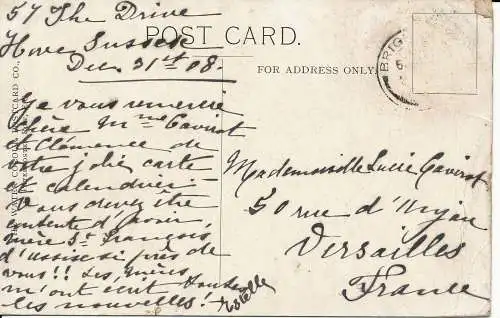 57 The Drive
Hove Sussex
Dec 31st 08
POST CARD.
FOR ADDRESS ONLY.
BRIG
Je vous remercie
chère Mme Gavirot
et Clémence de
votre jolie carte
et calendrier
Vous devez être
contente d'avoir
mère St François
d'assise si près de
vous!! Les mères
m'ont écrit toutes
les nouvelles! Estelle
Mademoiselle Lucie Gavirot
50 rue d'Anjou
Versailles
France